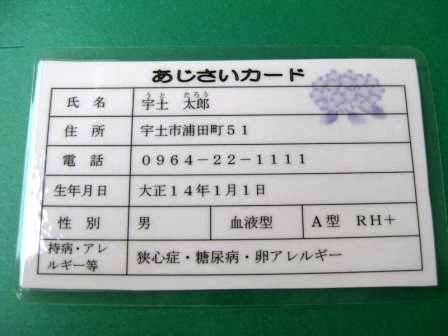 あじさいカード
うと たろう
氏名 宇土 太郎
住所 宇土市浦田町５１
電話 ０９６４－２２－１１１１
生年月日 大正１４年１月１日
性別 男 血液型 Ａ型 ＲＨ＋
持病・アレ
ルギー等 狭心症・糖尿病・卵アレルギー